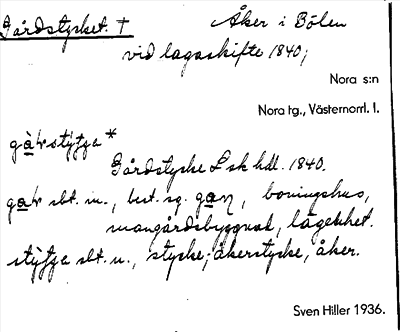 Gårdstycket. † Åker i Bölen
vid lagaskifte 1840;
Nora s:n
Nora tg., Västernorrl. l.
Gårdstycke Lsk hdl. 1840.
slt. m., best. sg. boningshus,
mangårdsbyggnad, lägenhet.
slt. n., stycke; åkerstycke, åker.
Sven Hiller 1936.